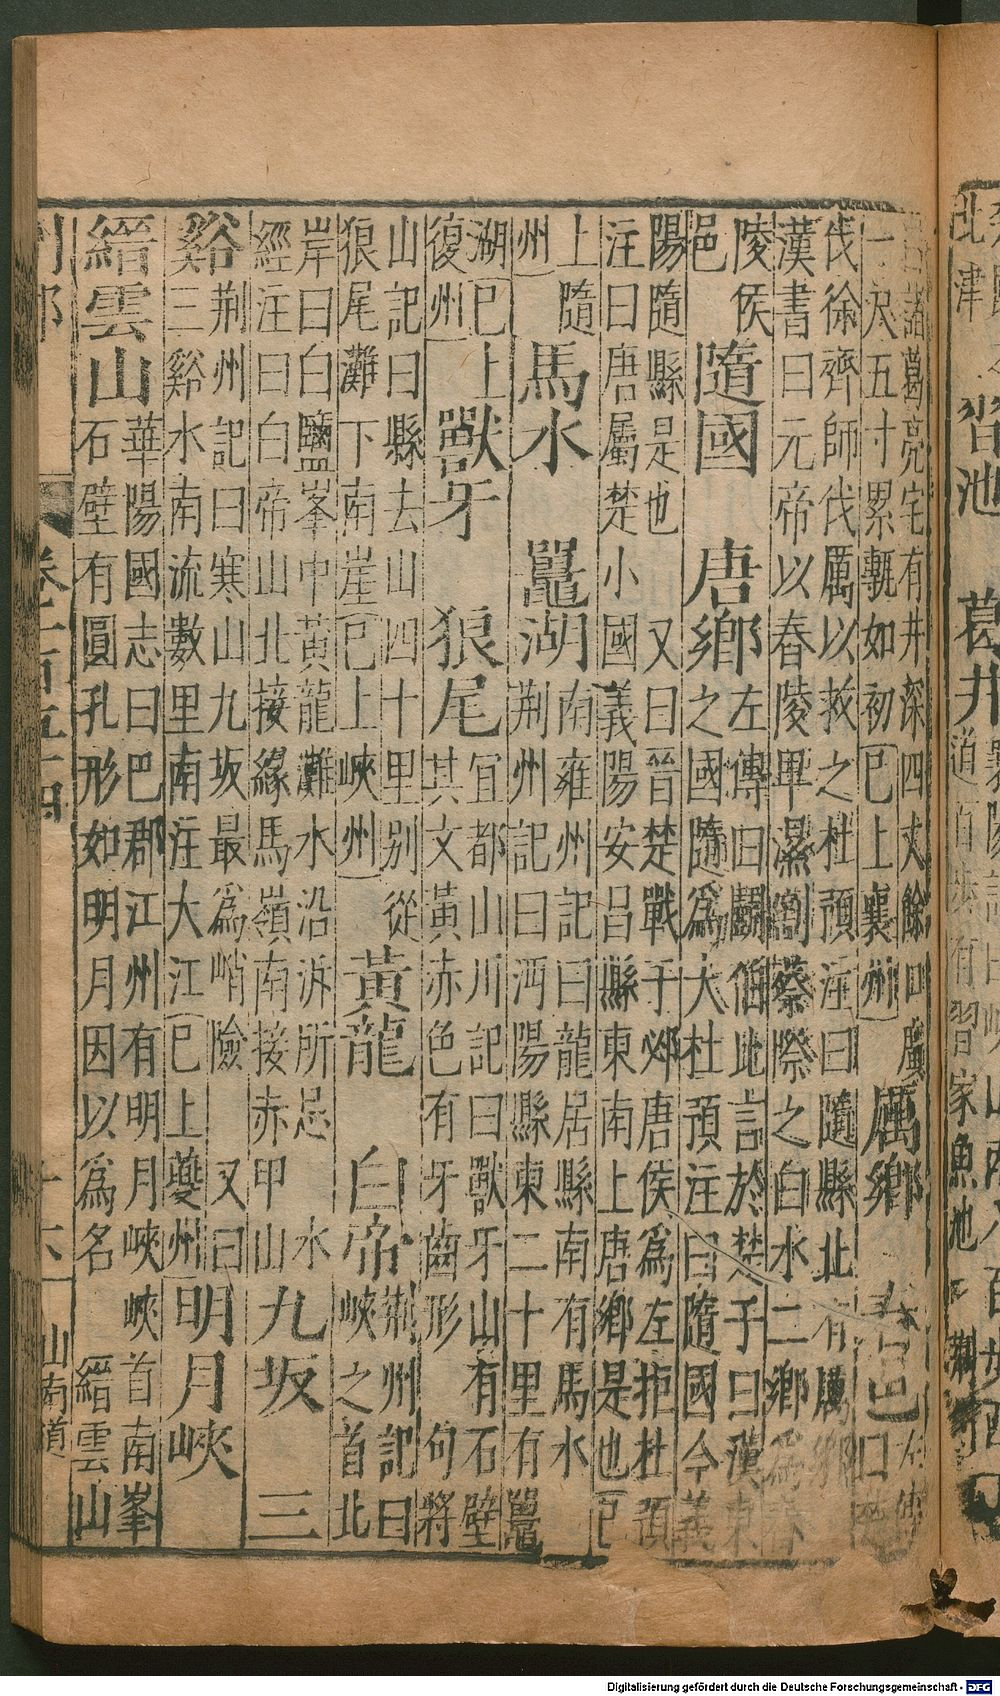 北津 習池 葛井
有習家魚池
諸葛亮宅有井深四丈餘口廣
一尺五寸累甎如初(已上襄州)
厲鄉
左傳
伐徐齊師伐厲以救之杜預注曰隨縣北有厲鄉
漢書曰元帝以舂陵卑濕割蔡陽之白水二鄉爲舂
陵侯
邑
隨國 唐鄉
左傳曰鬭伯比言於楚子曰漢東
之國隨爲大杜預注曰隨國今義
陽隨縣是也 又曰晉楚戰于邲唐侯爲左拒杜預
注曰唐屬楚小國義陽安昌縣東南上唐鄉是也(已
上隨
州)
馬水 鼉湖
南雍州記曰龍居縣南有馬水
荆州記曰沔陽縣東二十里有鼉
湖(已上
復州)
獸牙 狼尾
宜都山川記曰獸牙山有石壁
其文黃赤色有牙齒形 句將
山記曰縣去山四十里別從
狼尾灘下南崖(已上峽州)
黃龍 白帝
荆州記曰
峽之首北
岸曰白鹽峯中黃龍灘水沿泝所忌 水
經注曰白帝山北接緣馬嶺南接赤甲山
九坂 三
谿
荆州記曰寒山九坂最爲峭險 又曰
三谿水南流數里南注大江(已上夔州)
明月峽
縉雲山
華陽國志曰巴郡江州有明月峽峽首南峯
石壁有圓孔形如明月因以爲名 縉雲山
州郡 卷一百五十四 十六 山南道
Digitalisierung gefördert durch die Deutsche Forschungsgemeinschaft - DFG